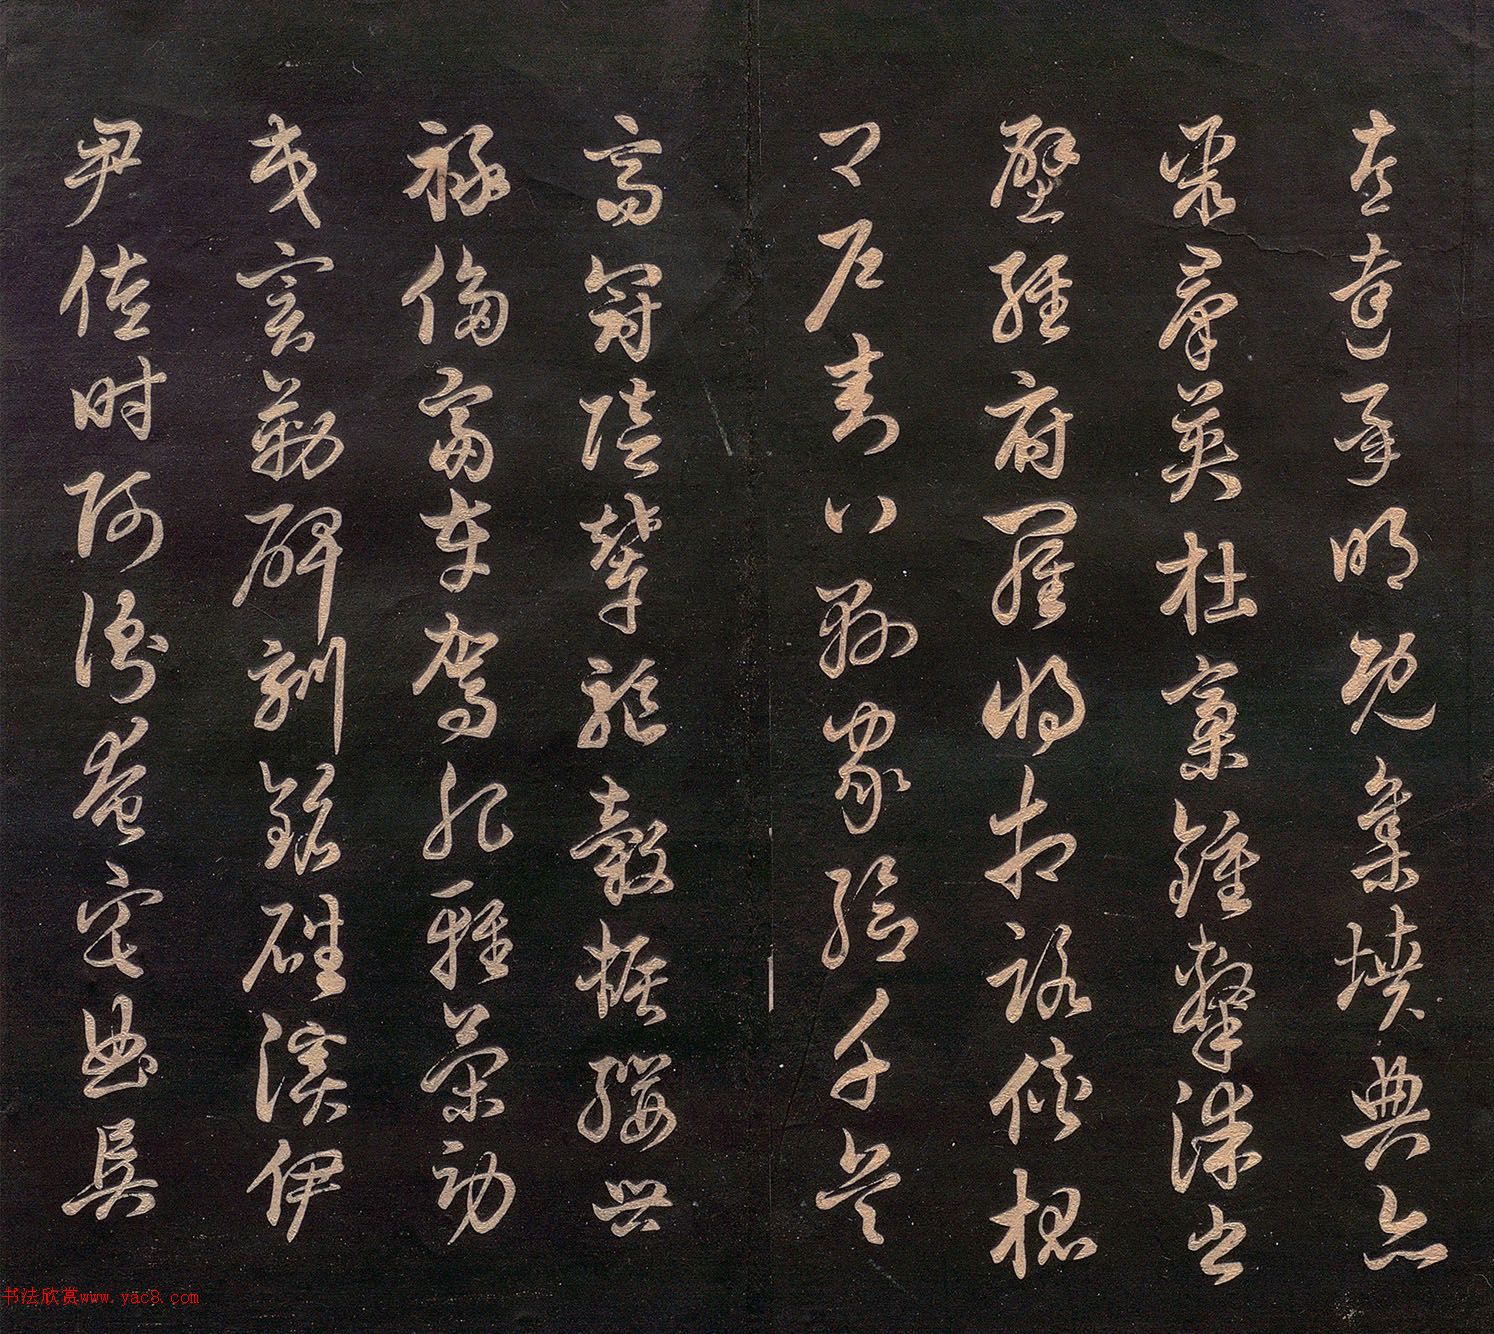 左達承明既集墳典亦
聚群英杜稾鍾隸漆書
壁經府羅將相路俠槐
卿戶封八縣家給千兵
高冠陪輦驅轂振纓世
祿侈富車駕肥輕策功
茂實勒碑刻銘磻溪伊
尹佐時阿衡奄宅曲阜
书法欣赏www.yac8.com